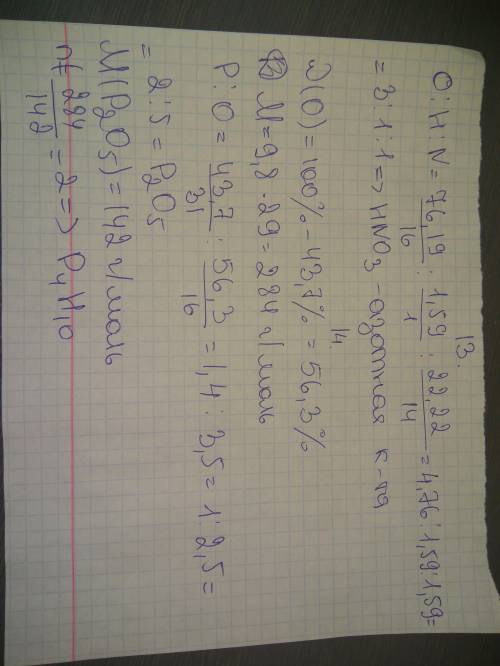 13.
O:H:N = 76,19/16 : 1,59/1 : 22,22/14 = 4,76:1,59:1,59=
= 3:1:1 => HNO3 - азотная к-та
14.
ω(O) = 100% - 43,7% = 56,3%
M = 9,8 · 29 = 284 г/моль
P:O = 43,7/31 : 56,3/16 = 1,4 : 3,5 = 1:2,5 =
= 2:5 = P2O5
M(P2O5) = 142 г/моль
n = 284/142 = 2 => P4H10